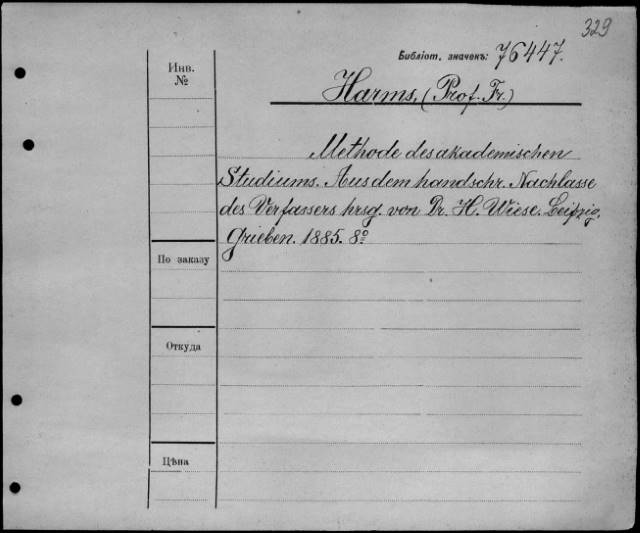 329
Библіот. значекъ: 76447.
Инв.
№
Harms, (Prof. Fr.)
Methode des akademischen
Studiums. Aus dem handschr. Nachlasse
des Verfassers hrsg. von Dr. H. Wiese. Leipzig,
Grieben. 1885. 8º
По заказу
Откуда
Цѣна